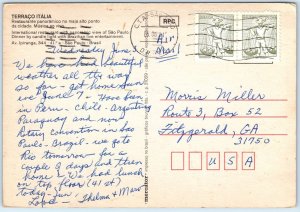 TERRAÇO ITALIA
Restaurante panorâmico na mais alto ponto
da cidade. Música ao vivo.
International restaurant with panoramic view of São Paulo.
Dinner by candle light with Brazilian live entertainment.
Av. Ipiranga, 344 - 41º - São Paulo - Brasil
RPC
Air
Mail
Wednesday, June 3
We have had beautiful
weather all the way
so far - get home Sun
June 7. Have been
in Peru - Chile - Argentina
Paraguay and now
Rotary Convention in São
Paulo - Brazil - we go to
Rio tomorrow - for a
couple of days and then
home. We had lunch
on top floor (41 st)
today - fun.
Love - Thelma &
Morris Miller
Route 3, Box 52
Fitzgerald, GA
31750
USA